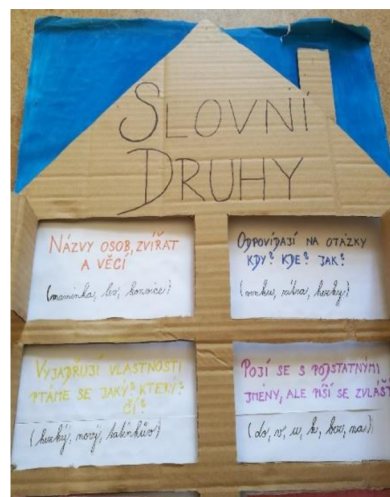 SLOVNÍ
DRUHY
NÁZVY OSOB, ZVÍŘAT
A VĚCÍ
(maminka, lev, konvice)
ODPOVÍDAJÍ NA OTÁZKY
KDY? KDE? JAK?
(venku, zítra, hezky)
VYJADŘUJÍ VLASTNOSTI
PTÁME SE JAKÝ? KTERÝ?
ČÍ?
(hezký, nový, tatínkův)
POJÍ SE S PODSTATNÝMI
JMÉNY, ALE PÍŠÍ SE ZVLÁŠŤ
(do, v, u, k, bez, na)